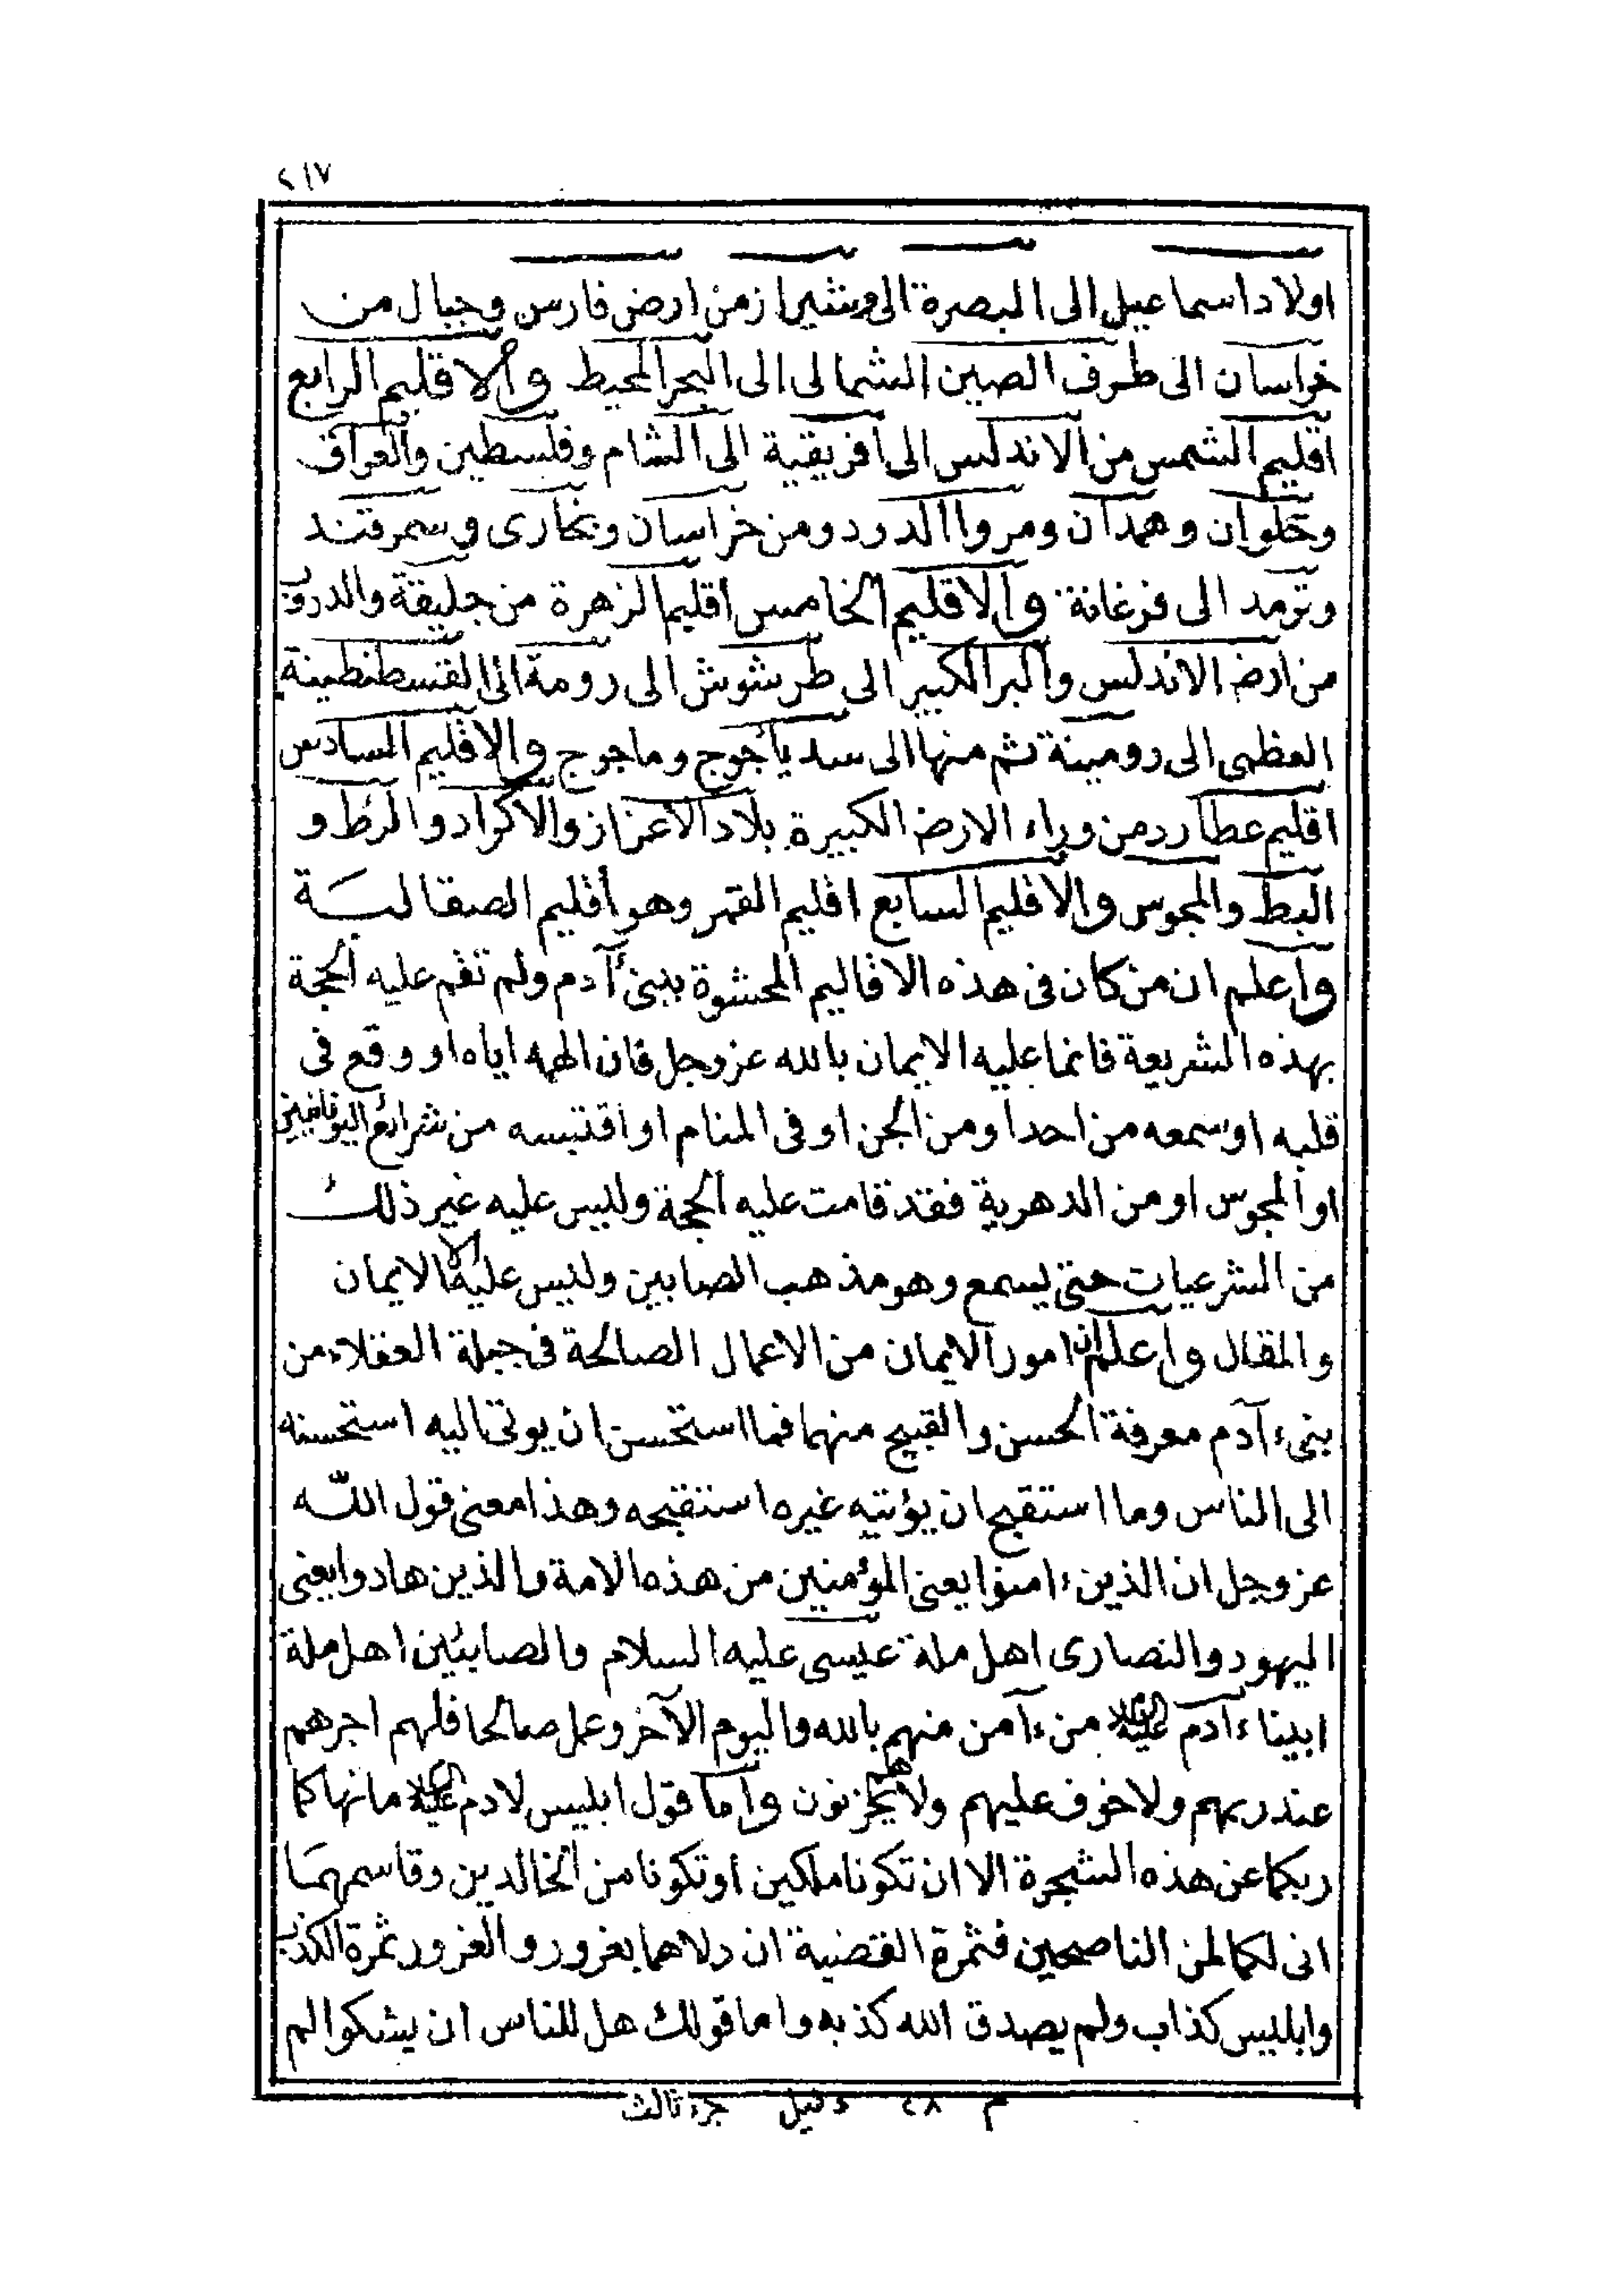 ٢١٧
اولاد اسماعيل الى البصرة الى وشيراز من ارض فارس وجبال من
خراسان الى طرف الصين الشمالى الى البحر المحيط والاقليم الرابع
اقليم الشمس من الاندلس الى افريقية الى الشام وفلسطين والعراق
وحلوان وهمدان ومروا الدرود ومن خراسان وبخارى وسمرقند
وترمد الى فرغانة والاقليم الخامس اقليم الزهرة من جليقة والدروب
من ارض الاندلس والبر الكبير الى طرشوش الى رومة الى القسطنطينة
العظمى الى رومينة ثم منها الى سد يأجوج وماجوج والاقليم السادس
اقليم عطارد من وراء الارض الكبيرة بلاد الاعزاز والاكراد والزط و
البط والمجوس والاقليم السابع اقليم القمر وهو أقليم الصقالبة
واعلم ان من كان فى هذه الاقاليم المحشوة ببنى آدم ولم تقم عليه الحجة
بهذه الشريعة فانما عليه الايمان بالله عز وجل فان الهمه اياه او وقع فى
قلبه او سمعه من احد او من الجن او فى المنام او اقتبسه من شرائع اليونانيين
او المجوس او من الدهرية فقد قامت عليه الحجة وليس عليه غير ذلك
من الشرعيات حتى يسمع وهو مذهب الصابين وليس عليه الا الايمان
والمقال واعلم ان امور الايمان من الاعمال الصالحة فى جبلة العقلاء من
بنىء آدم معرفة الحسن والقبيح منهما فما استحسن ان يوتى اليه استحسنه
الى الناس وما استقبح ان يؤتيه غيره استقبحه وهذا معنى قول الله
عز وجل ان الذين ءامنوا يعنى المؤمنين من هذه الامة والذين هادوا يعنى
اليهود والنصارى اهل ملة عيسى عليه السلام والصابئين اهل ملة
ابيناء آدم عليه السلام من ءآمن منهم بالله واليوم الآخر وعمل صالحا فلهم اجرهم
عند ربهم ولا خوف عليهم ولا هم يحزنون واما قول ابليس لادم عليه السلام ما نهاكما
ربكما عن هذه الشجرة الا ان تكونا ملكين او تكونا من الخالدين وقاسمهما
انى لكما لمن الناصحين فثمرة القضية ان دلاهما بغرور والغرور ثمرة الكذب
وابليس كذاب ولم يصدق الله كذبه واما قولك هل للناس ان يشكوا الم
م ٢٨ دليل جزء ثالث